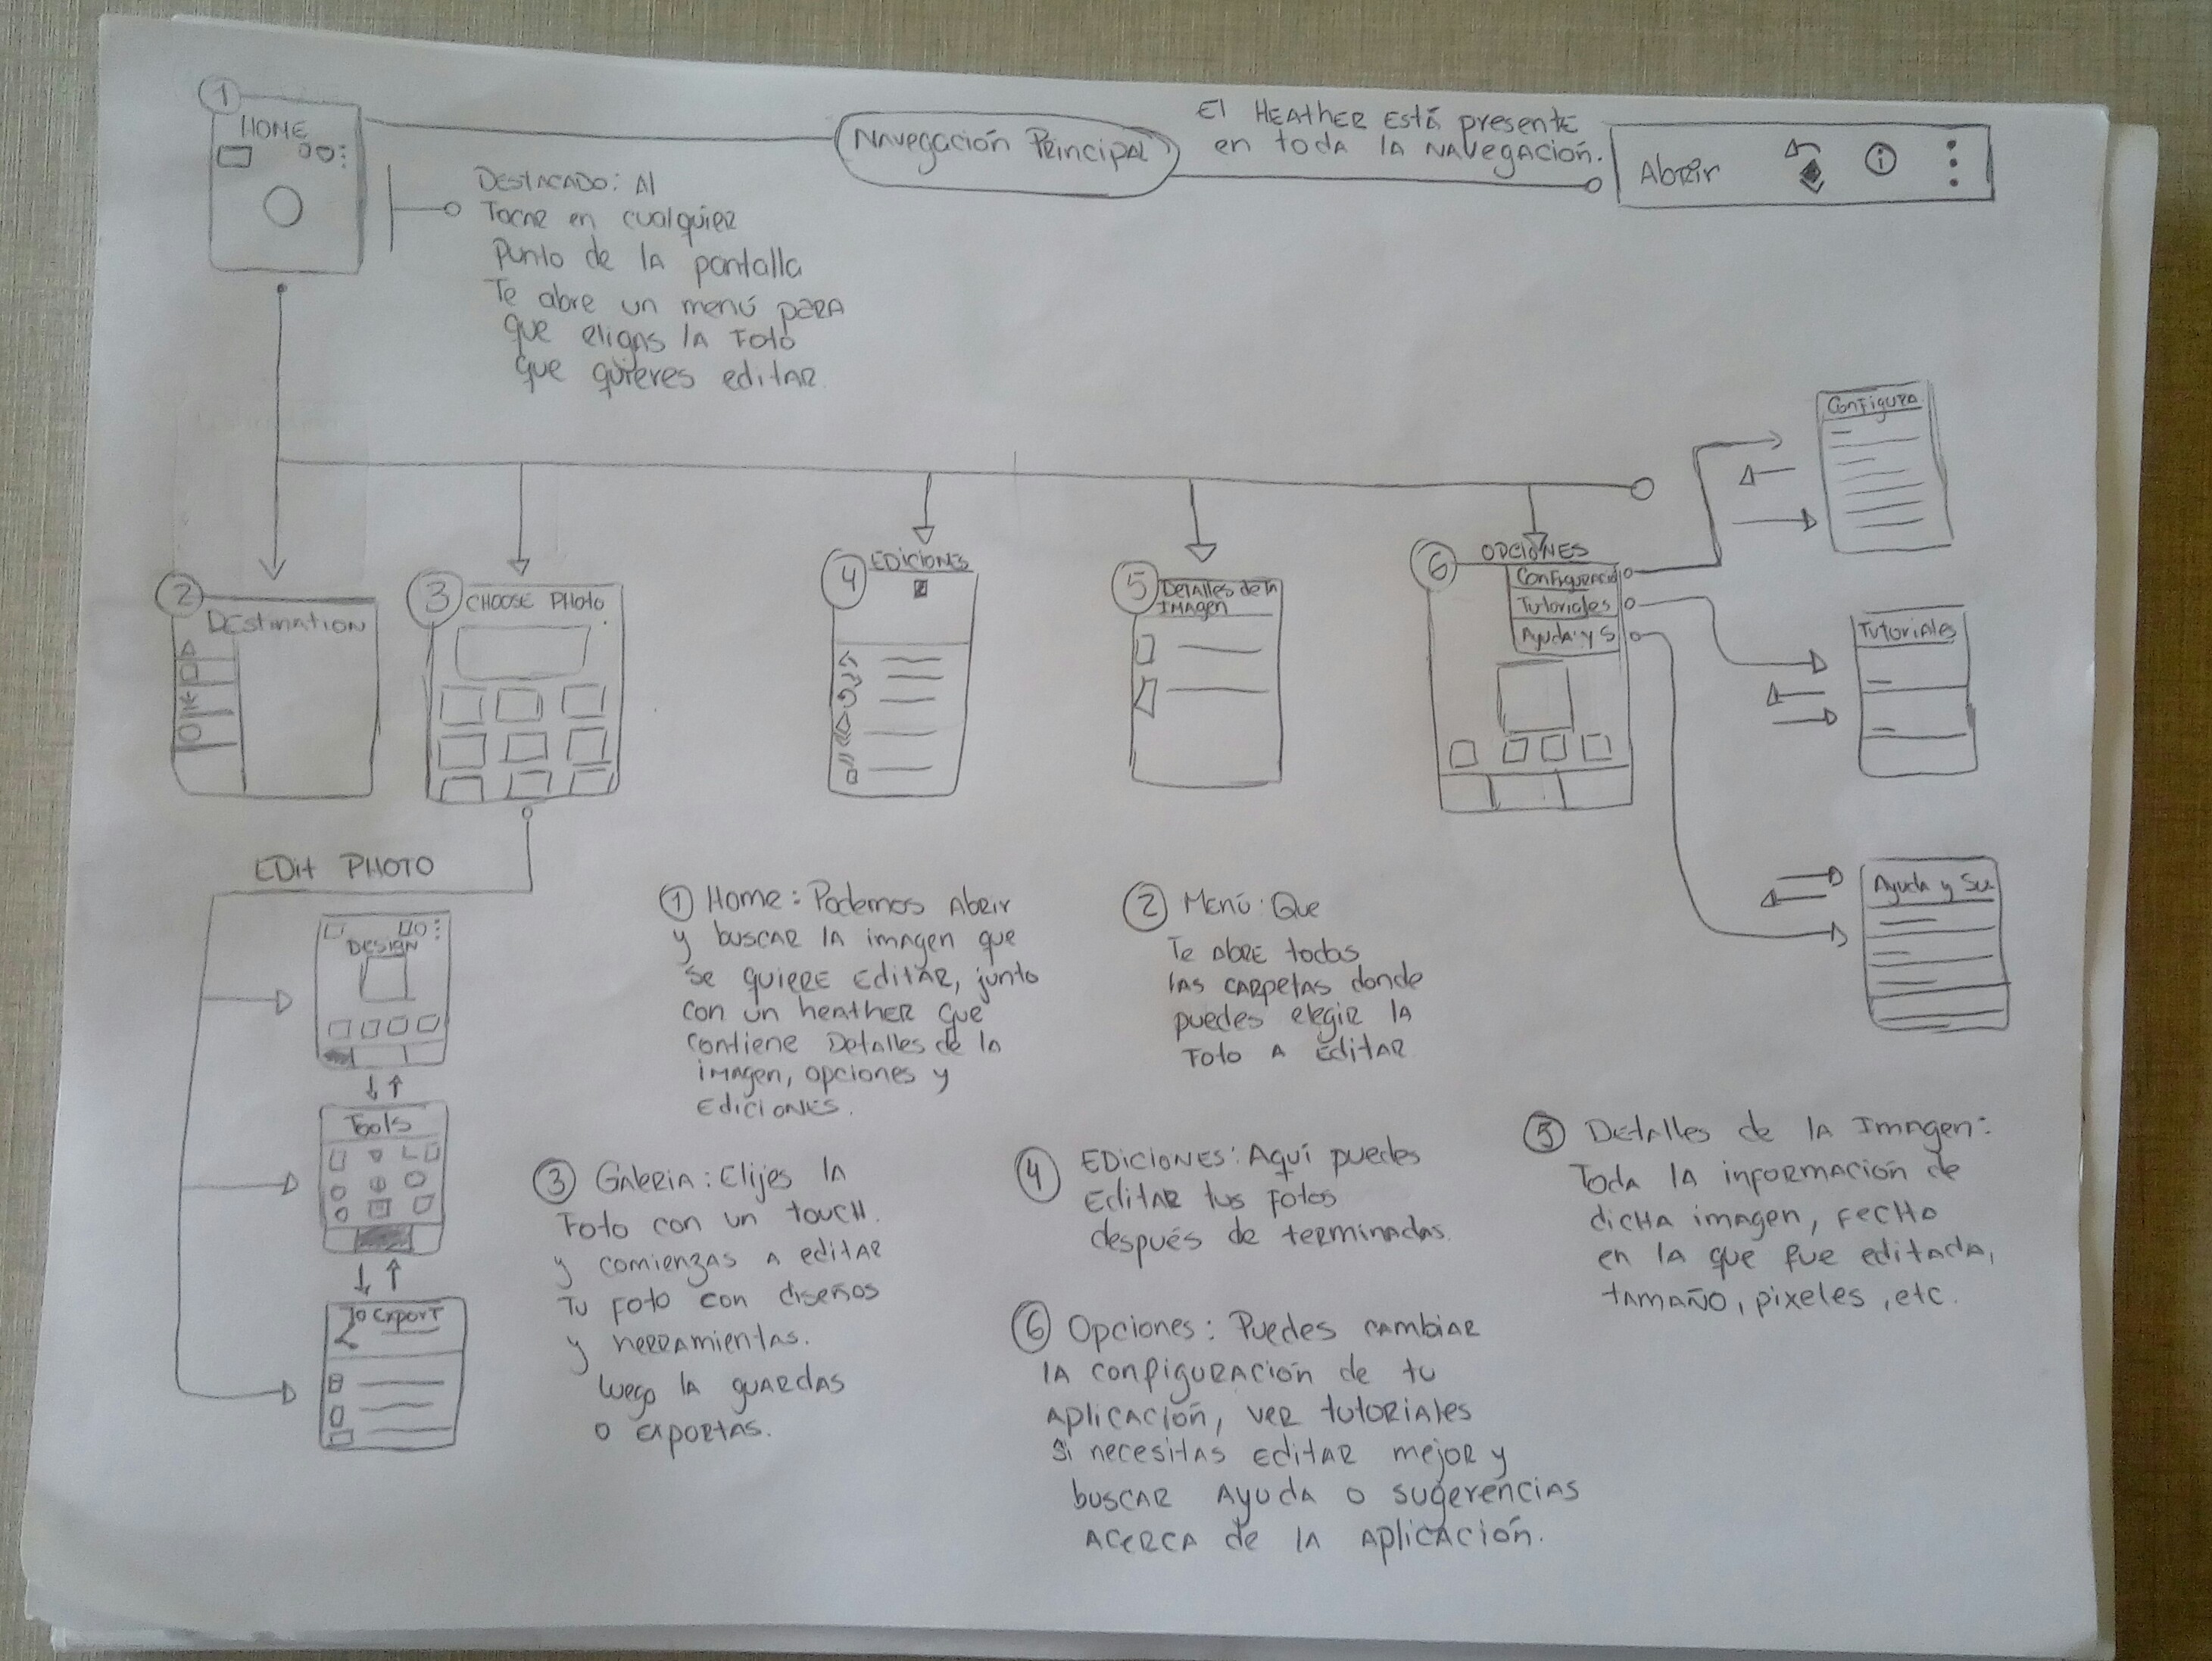 1
HOME
Navegación Principal
El HEATHER está presente
en toda la navegación.
Abrir
DESTACADO: Al
Tocar en cualquier
punto de la pantalla
Te abre un menú para
que eligas la Foto
que quieres editar
2
DEstination
3
CHOOSE PHoto
4
EDICIONES
5
Detalles de la
IMAgen
6
OPCIONES
Configuració
Tutoriales
Ayuda y S
Configura
Tutoriales
Ayuda y Su
EDit PHOTO
DESIGN
Tools
To Export
1 Home: Podemos Abrir
y buscar la imagen que
se quiere editar, junto
con un heather que
contiene Detalles de la
imagen, opciones y
Ediciones.
2 Menú: Que
Te abre todas
las carpetas donde
puedes elegir la
Foto a Editar
3 Galeria: Elijes la
Foto con un touch
y comienzas a editar
Tu foto con diseños
y herramientas.
luego la guardas
o exportas.
4 EDICIONES: Aquí puedes
Editar tus fotos
después de terminadas.
5 Detalles de la Imagen:
Toda la información de
dicha imagen, fecha
en la que fue editada,
tamaño, pixeles, etc.
6 Opciones: Puedes cambiar
la configuración de tu
aplicación, ver tutoriales
si necesitas editar mejor y
buscar Ayuda o sugerencias
acerca de la aplicación.